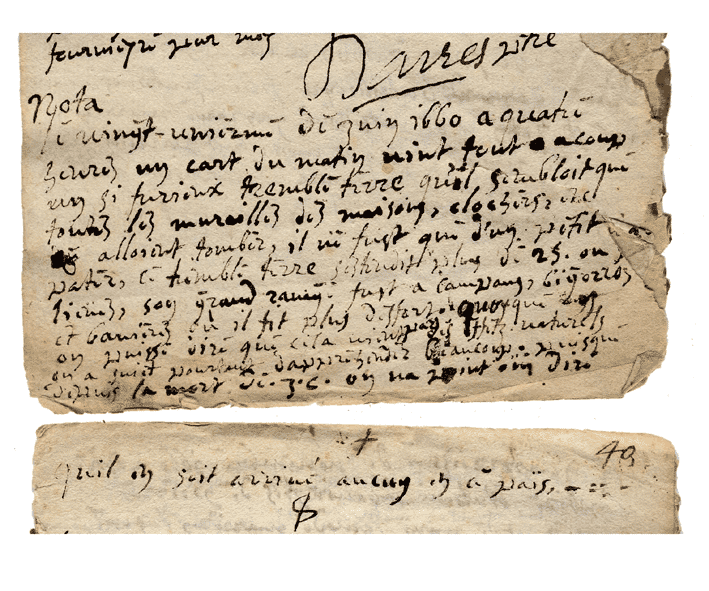 pour mes Darres ptre
Nota
le vingt-uniesme de juin 1660 a quatre
heures un cart du matin vint tout a coup
un si furieux tremble terre quil sembloit que
toutes les murailles des maisons, clochers, etc
alloient tomber, il ne fust que d'un petit
pater, ce tremble terre sestendit plus de 25. ou
lieues, son grand ravage fust a campan, bigorre
et banieres ou il fit plus d'effort. quoyque
on puisse dire que cela vient par des effets naturels
on a suiet pourtant dapprehender beaucoup. puisque
depuis la mort de J.C. on na point oüi dire
+ 49
quil en soit arrivé aucun en ce païs,